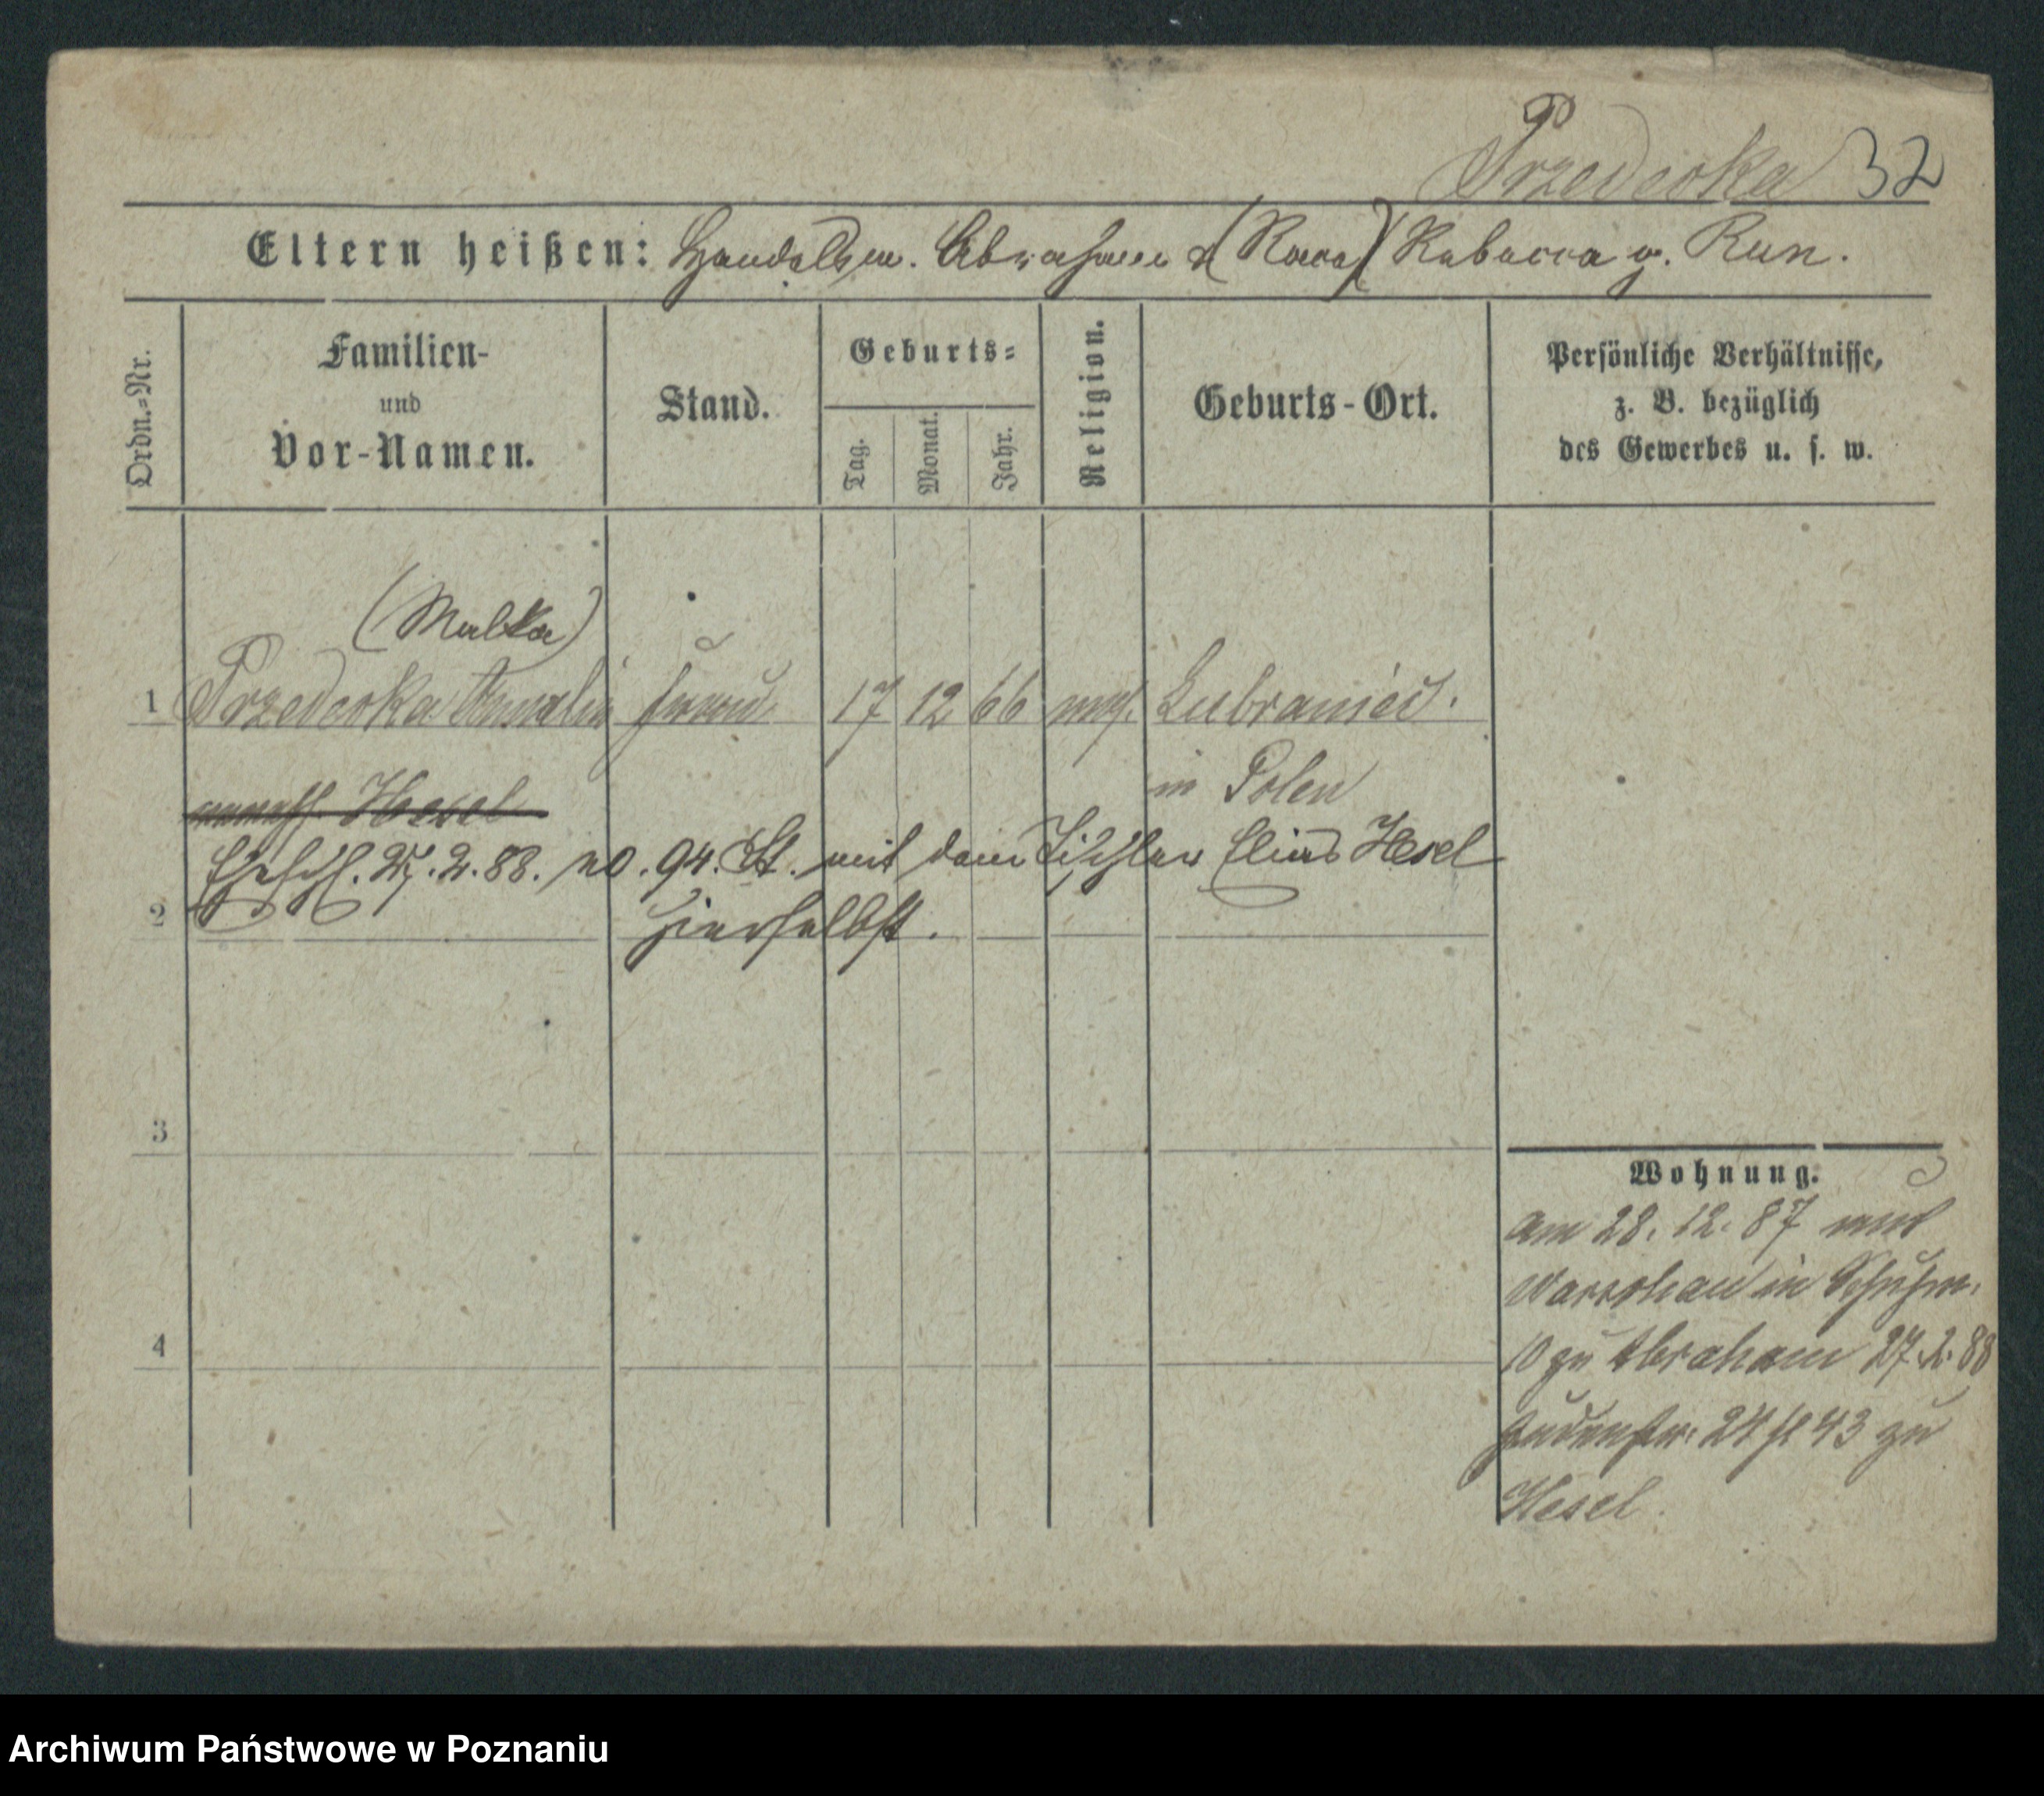 Przedecka 32
Eltern heißen: Handelsm. Abraham & (Racca) Rebecca g. Run.
Ordn.=Nr.
Familien-
und
Vor-Namen.
Stand.
Geburts=
Tag.
Monat.
Jahr.
Religion.
Geburts-Ort.
Persönliche Verhältnisse,
z. B. bezüglich
des Gewerbes u. s. w.
(Malka)
1 Przedecka Amalie 17 12 66 mos. Lubraniec.
in Polen
verehl. Hesel
Eheschl. 27.2.88. no. 94. St. mit dem Tischler Elias Hesel
2 hierselbst.
3
4
Wohnung.
am 28. 12. 87 aus
Warschau in Schuhm.
10 zu Abraham 27.2.88
Judenstr. 24 43 zu
Hesel.
Archiwum Państwowe w Poznaniu